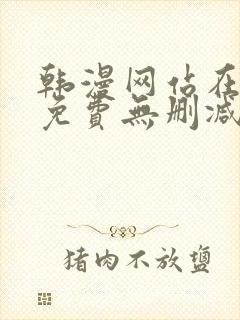 韩漫网站在
免費無删减
猪肉不放鹽